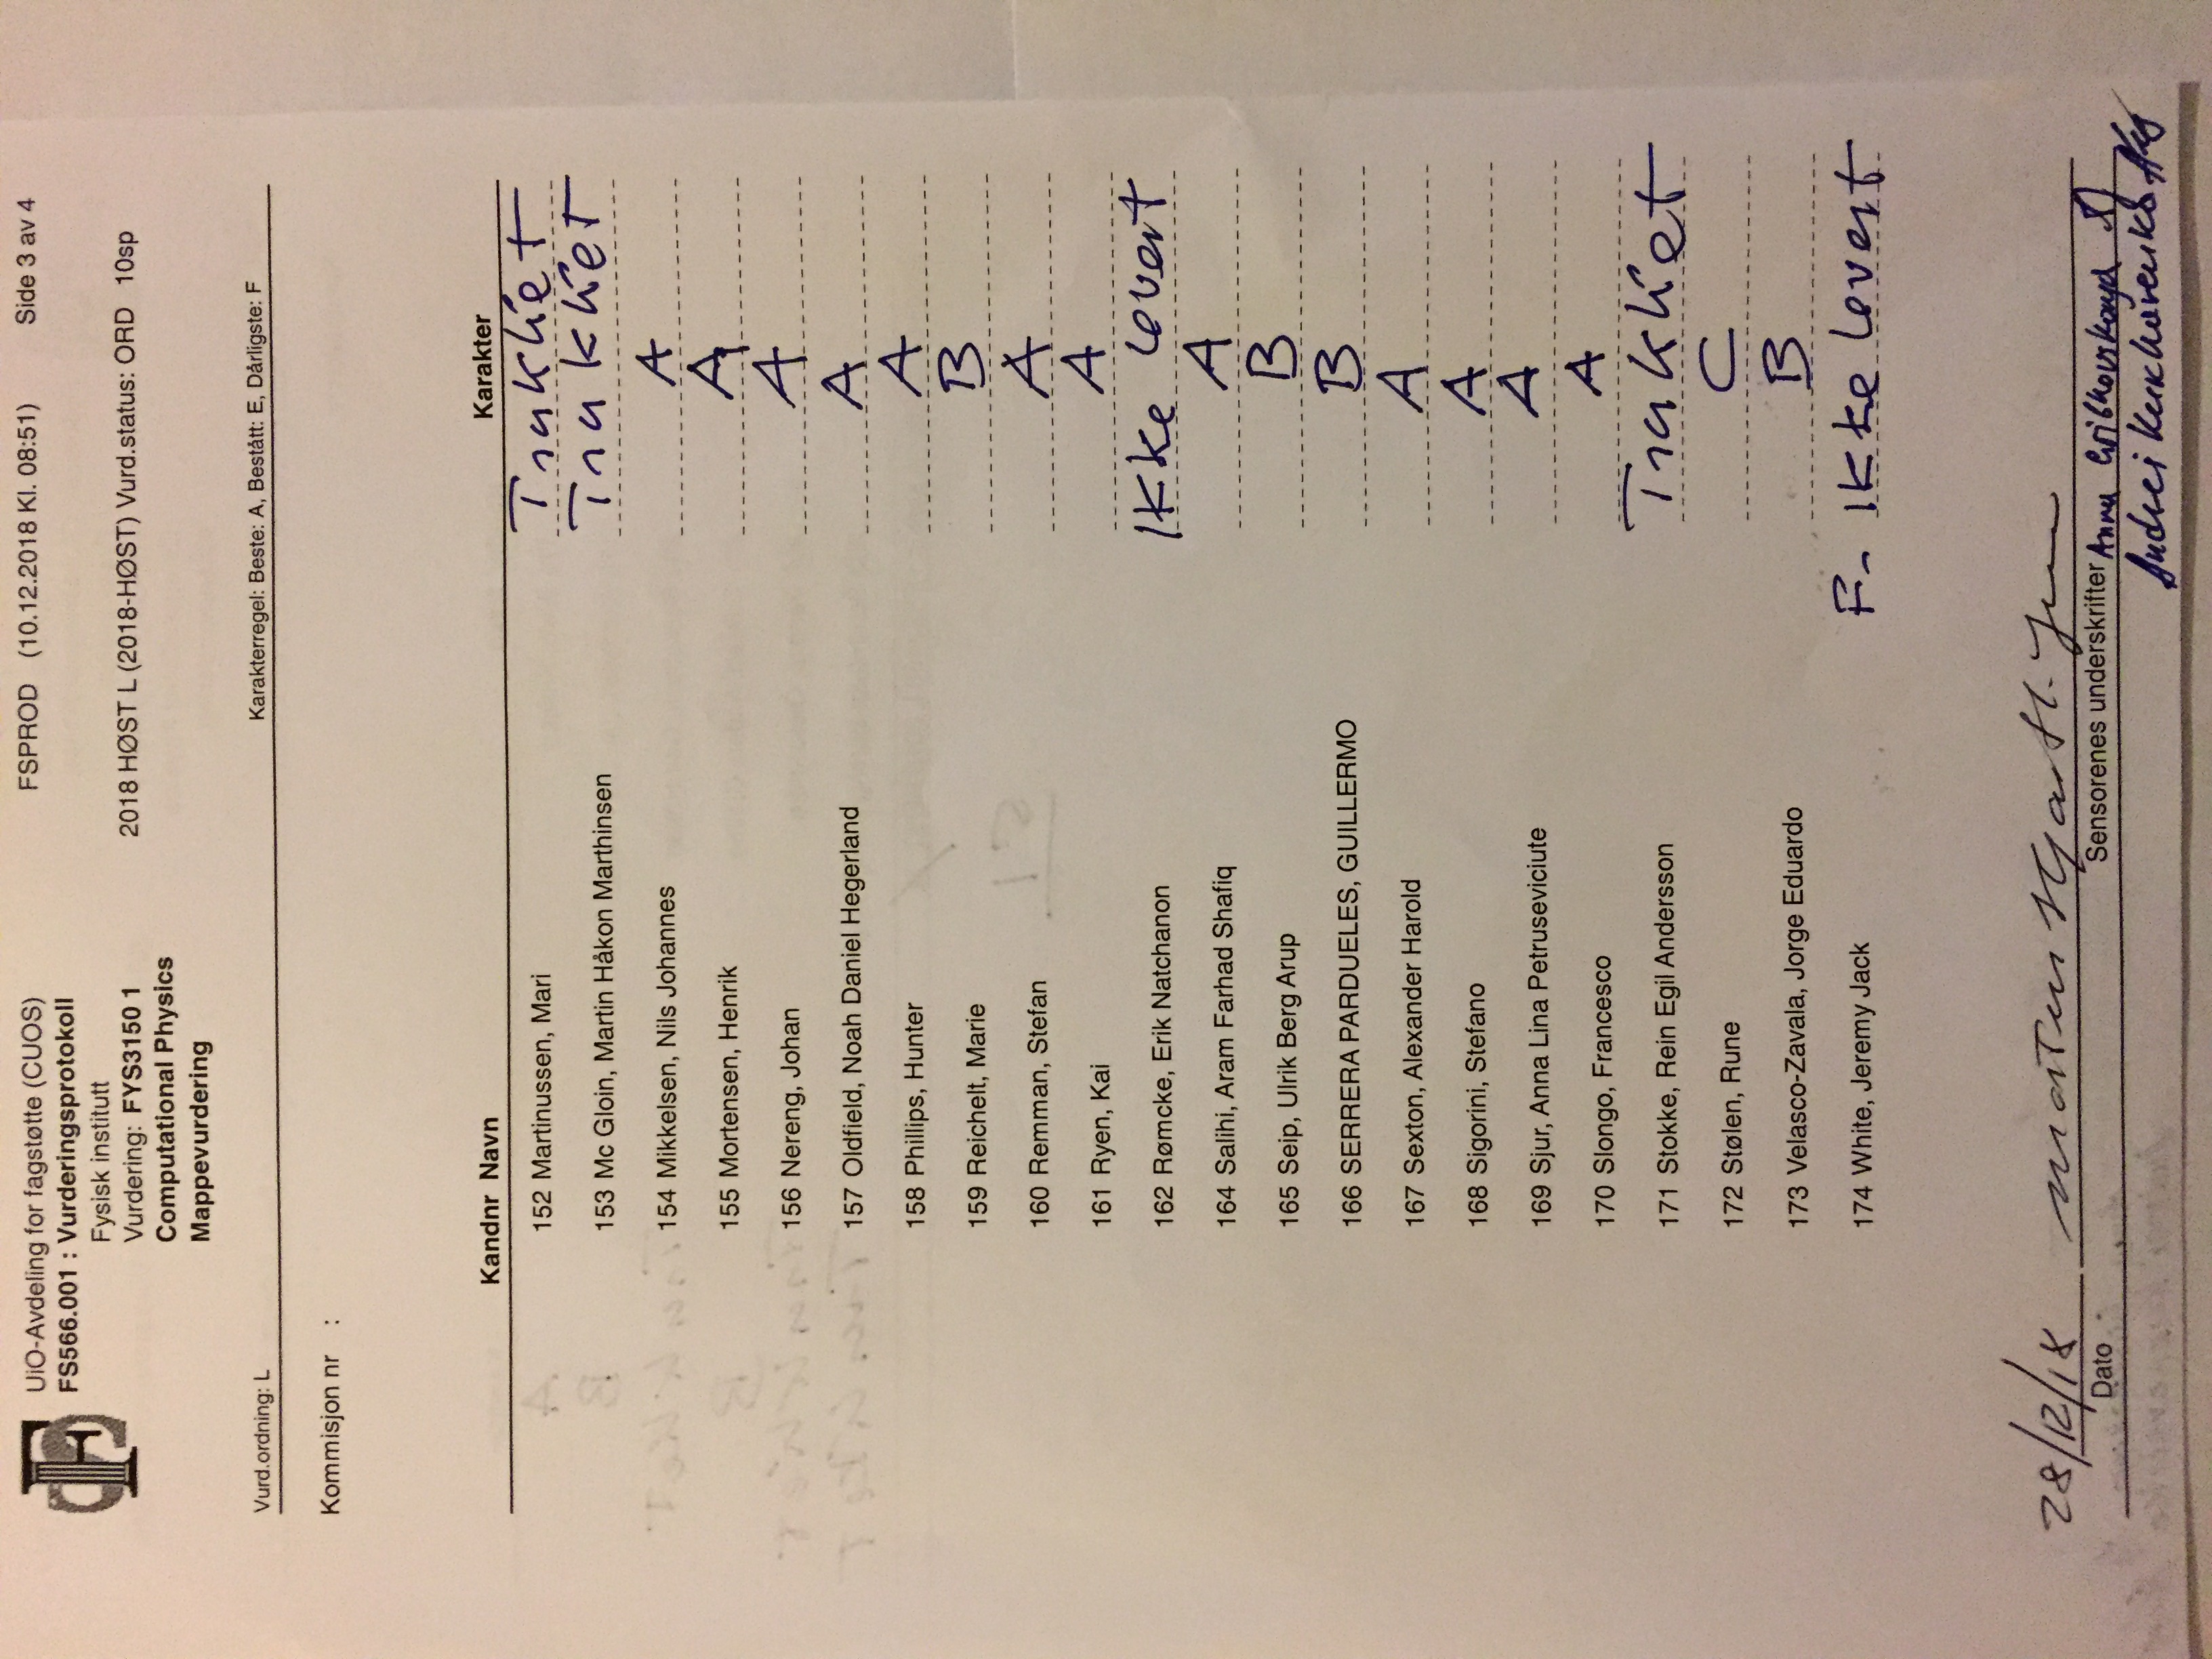 UiO-Avdeling for fagstøtte (CUOS) FSPROD (10.12.2018 Kl. 08:51) Side 3 av 4
FS566.001 : Vurderingsprotokoll
Fysisk institutt
Vurdering: FYS3150 1 2018 HØST L (2018-HØST) Vurd.status: ORD 10sp
Computational Physics
Mappevurdering
Vurd.ordning: L Karakterregel: Beste: A, Bestått: E, Dårligste: F
Kommisjon nr :
Kandnr Navn Karakter
152 Martinussen, Mari Trukket
153 Mc Gloin, Martin Håkon Marthinsen Trukket
154 Mikkelsen, Nils Johannes A
155 Mortensen, Henrik A
156 Nereng, Johan A
157 Oldfield, Noah Daniel Hegerland A
158 Phillips, Hunter A
159 Reichelt, Marie B
160 Remman, Stefan A
161 Ryen, Kai A
162 Rømcke, Erik Natchanon Ikke levert
164 Salihi, Aram Farhad Shafiq A
165 Seip, Ulrik Berg Arup B
166 SERRERA PARDUELES, GUILLERMO B
167 Sexton, Alexander Harold A
168 Sigorini, Stefano A
169 Sjur, Anna Lina Petruseviciute A
170 Slongo, Francesco A
171 Stokke, Rein Egil Andersson Trukket
172 Stølen, Rune C
173 Velasco-Zavala, Jorge Eduardo B
174 White, Jeremy Jack F- Ikke levert
28/12/18 Morten Hjorth-Jensen
Dato Sensorenes underskrifter Anna Gribkovskaya
Andrei Kukharenka